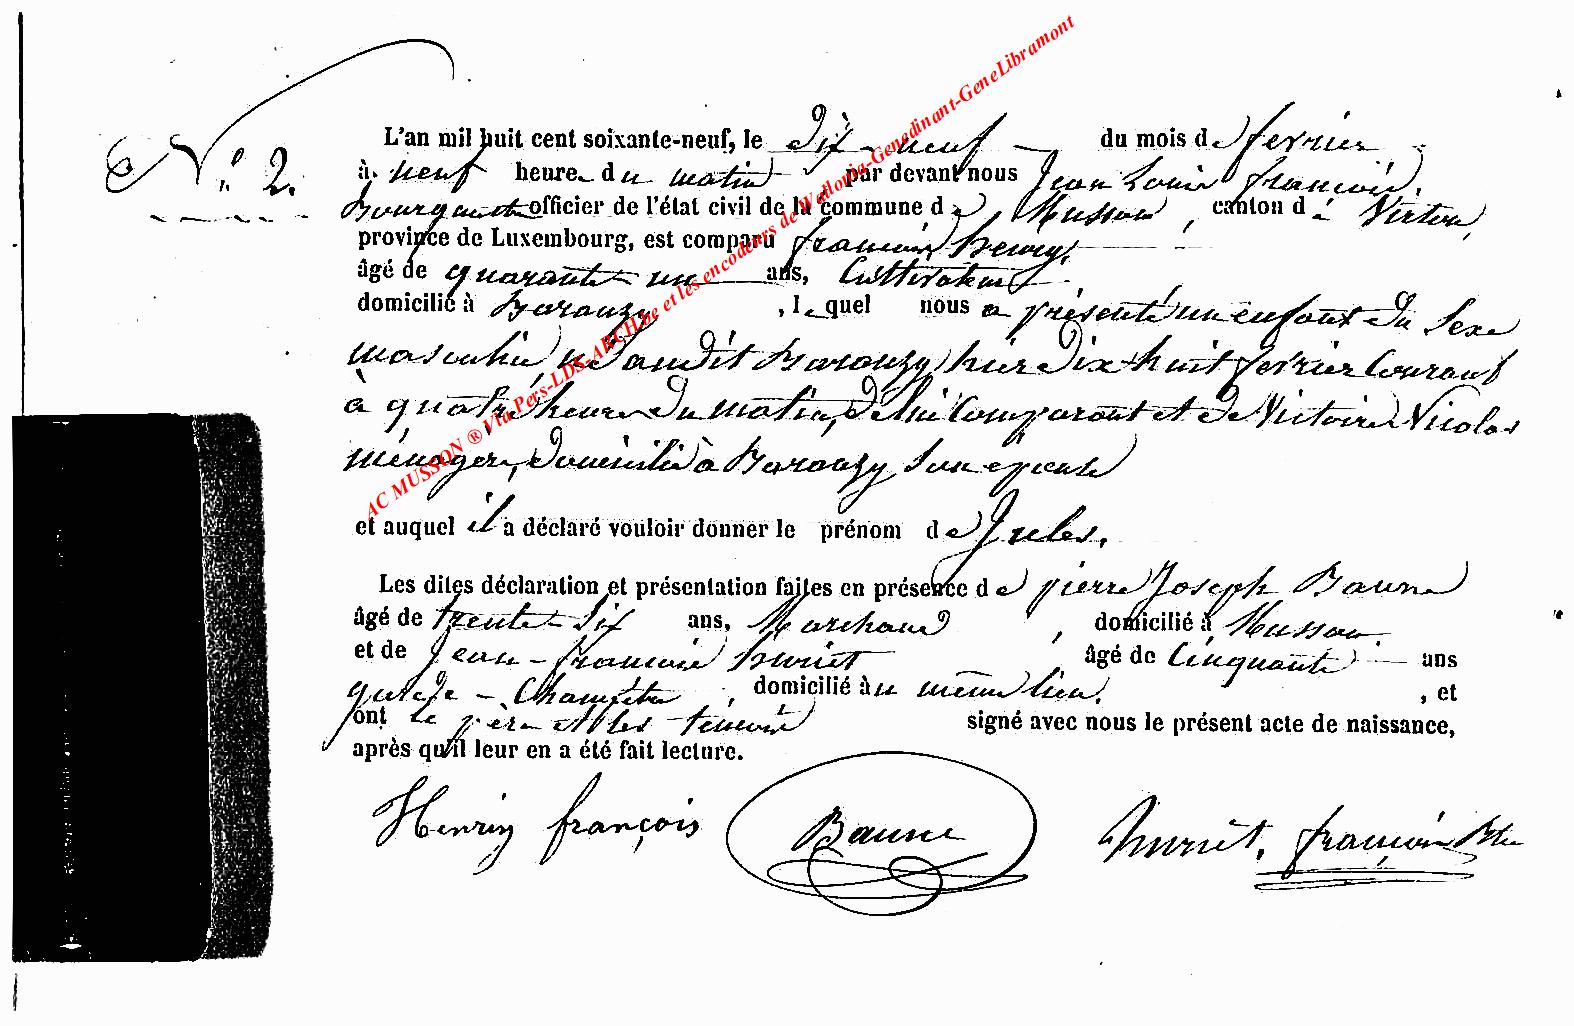 N° 2.
L'an mil huit cent soixante-neuf, le dix-neuf du mois de fevrier
à neuf heure du matin par devant nous Jean Louis françois
officier de l'état civil de la commune de Musson, canton de Virton,
province de Luxembourg, est comparu françois henry,
âgé de quarante un ans, Cultivateur
domicilié à Baranzy, lequel nous a présenté un enfant du Sexe
masculin, né audit Baranzy hier dix huit fevrier Courant
à quatre heures du matin, de lui Comparant et de Victoire Nicolas
ménagere, domicilié à Baranzy Son épouse
et auquel il a déclaré vouloir donner le prénom de Jules.
Les dites déclaration et présentation faites en présence de pierre Joseph Baune
âgé de trente Six ans, Marchand, domicilié à Musson
et de Jean-françois âgé de Cinquante ans
garde-Champêtre, domicilié au même lieu, et
ont le père et les témoins signé avec nous le présent acte de naissance,
après qu'il leur en a été fait lecture.
Henry françois Baune françois
AC MUSSON ® Via Pers-LDS-ARCH.be et les encodeurs de Wallonia-Genedinant-GeneLibramont